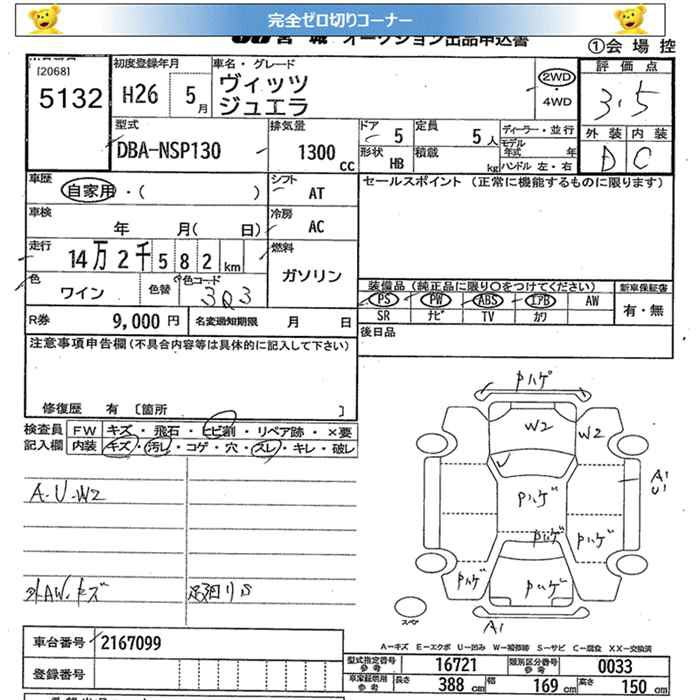 完全ゼロ切りコーナー
オークション出品申込書
①会場控
[2068]
5132
初度登録年月
H26 5月
車名・グレード
ヴィッツ
ジュエラ
2WD
・
4WD
評価点
3.5
外装 内装
D C
型式
DBA-NSP130
排気量
1300 CC
ドア 5
定員 5人
形状 HB
積載 kg
ディーラー・並行
モデル年式 年
ハンドル 左・右
車歴
自家用・( )
シフト
AT
セールスポイント (正常に機能するものに限ります)
車検
年 月( 日)
冷房
AC
走行
14万2千582km
燃料
ガソリン
色
ワイン
色替
色コード
3Q3
装備品 (純正品に限り○をつけてください)
新車保証書
PS PW ABS エアB AW
SR ナビ TV カワ
有・無
R券 9,000円
名変通知期限 月 日
後日品
注意事項申告欄(不具合内容等は具体的に記入して下さい)
修復歴 有 [箇所 ]
検査員記入欄
FW キズ・飛石・ヒビ割・リペア跡・×要
内装 キズ・汚レ・コゲ・穴・スレ・キレ・破レ
A.U.W2
AW.キズ
Pハゲ
W2
W2
A1
U1
Pハゲ
Pハゲ
Pハゲ
Pハゲ
A1
スペア
A-キズ E-エクボ U-凹み W-補修跡 S-サビ C-腐食 XX-交換済
車台番号 2167099
登録番号
型式指定番号 参考 16721
類別区分番号 参考 0033
車家指定規格 参考
長さ 388 cm
幅 169 cm
高さ 150 cm